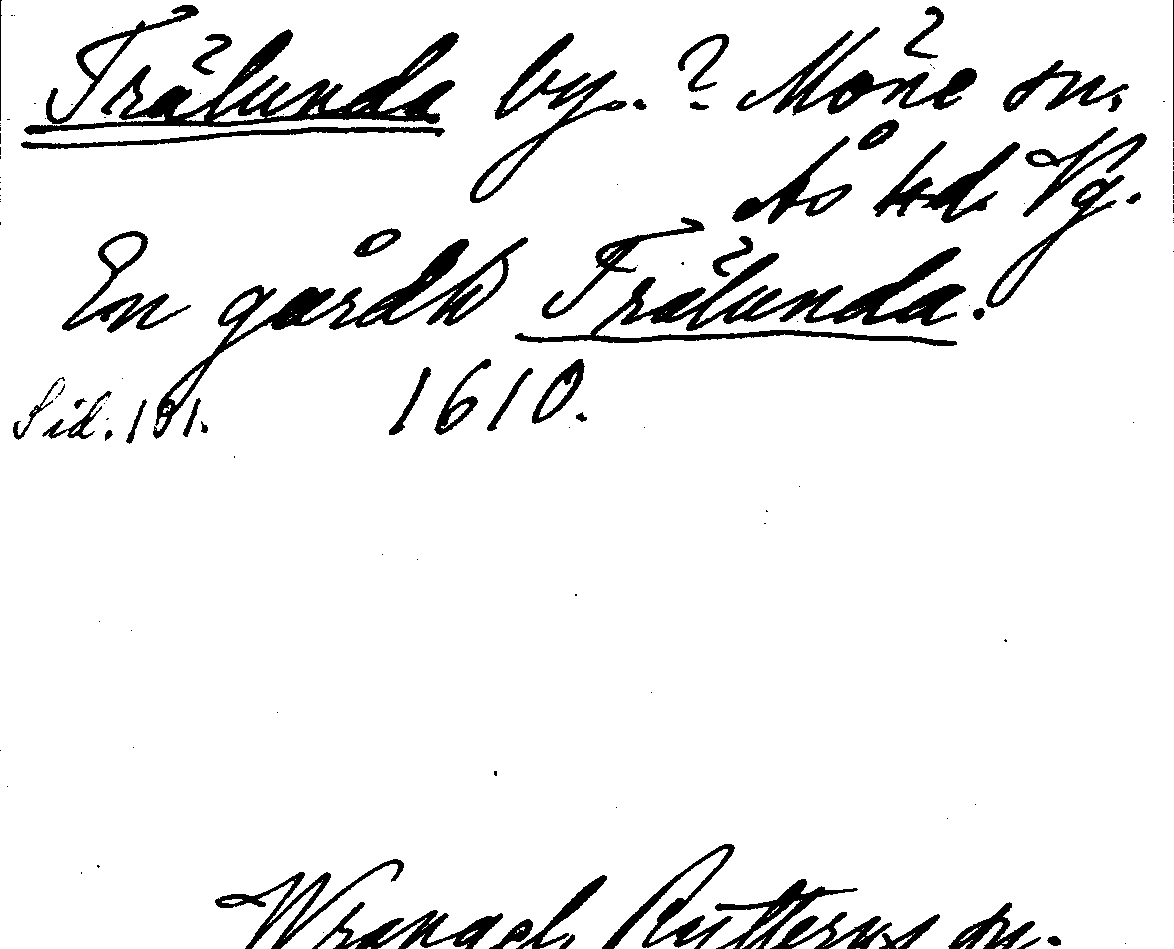 Trälunda by. ? Möne sn.
Ås Hd. Vg.
En gårdh Trälunda.
Sid. 191. 1610.
Wrangel,